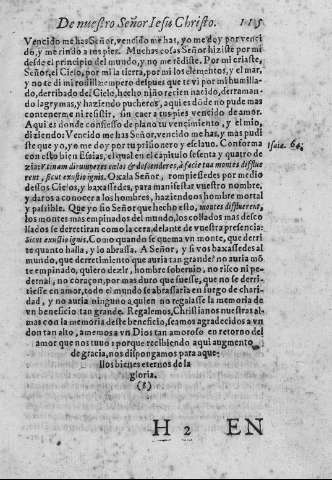 De nuestro Señor Iesu Christo. 115
Vencido me has Señor, vencido me has, yo me doy por venci
do, y me rindo a tus pies. Muchas cosas Señor hiziste por mi
desde el principio del mundo, y no me rēdiste. Por mi criaste,
Señor, el Cielo, por mi la tierra, por mi los elementos, y el mar,
y no te di mi rodilla: empero despues que te vi por mi humilla-
do, derribado del Cielo, hecho niño rezien nacido, derraman-
do lagrymas, y haziendo pucheros, aqui es dōde no pude mas
contenerme ni resistir, sin caer a tus pies vencido de amor.
Aqui es donde confiesso de plano tu vencimiento, y el mio,
diziendo: Vencido me has Señor, vencido me has, y mas pudi
ste que yo, yo me doy por tu prisionero y esclauo. Conforma
con esto bien Esaias, el qual en el capitulo sesenta y quatro de Isaie. 64.
zia: Vtinam dirumperes cælos & descenderes, à facie tua montes difflue
rent, sicut exustio ignis. Oxala Señor, rompiessedes por medio
dessos Cielos, y baxassedes, para manifestar vuestro nombre,
y daros a conocer a los hombres, haziendoos hombre mortal
y passible. Que yo fio Señor que hecho esso, montes diffluerent,
los montes mas empinados del mundo, los collados mas desco
llados se derretiran como la cera, delante de vuestra presencia:
sicut exustio ignis, Como quando se quema vn monte, que derri
te quanto halla, y lo abrasa. A Señor, y si vos baxassedes al
mundo, que derretimiento que auria tan grande! no auria mō
te empinado, quiero dezir, hombre soberuio, no risco ni pe-
dernal, no coraçon, por mas duro que fuesse, que no se derri-
tiesse en amor, todo el mundo se abrassaria en fuego de chari-
dad, y no auria ninguno a quien no regalasse la memoria de
vn beneficio tan grande. Regalemos, Christianos nuestras al-
mas con la memoria deste beneficio, seamos agradecidos a vn
don tan alto, amemos a vn Dios tan amoroso en retorno del
amor que nos tuuo: porque recibiendo aqui augmento
de gracia, nos dispongamos para aque-
llos bienes eternos de la
gloria.
(§)
H 2 EN